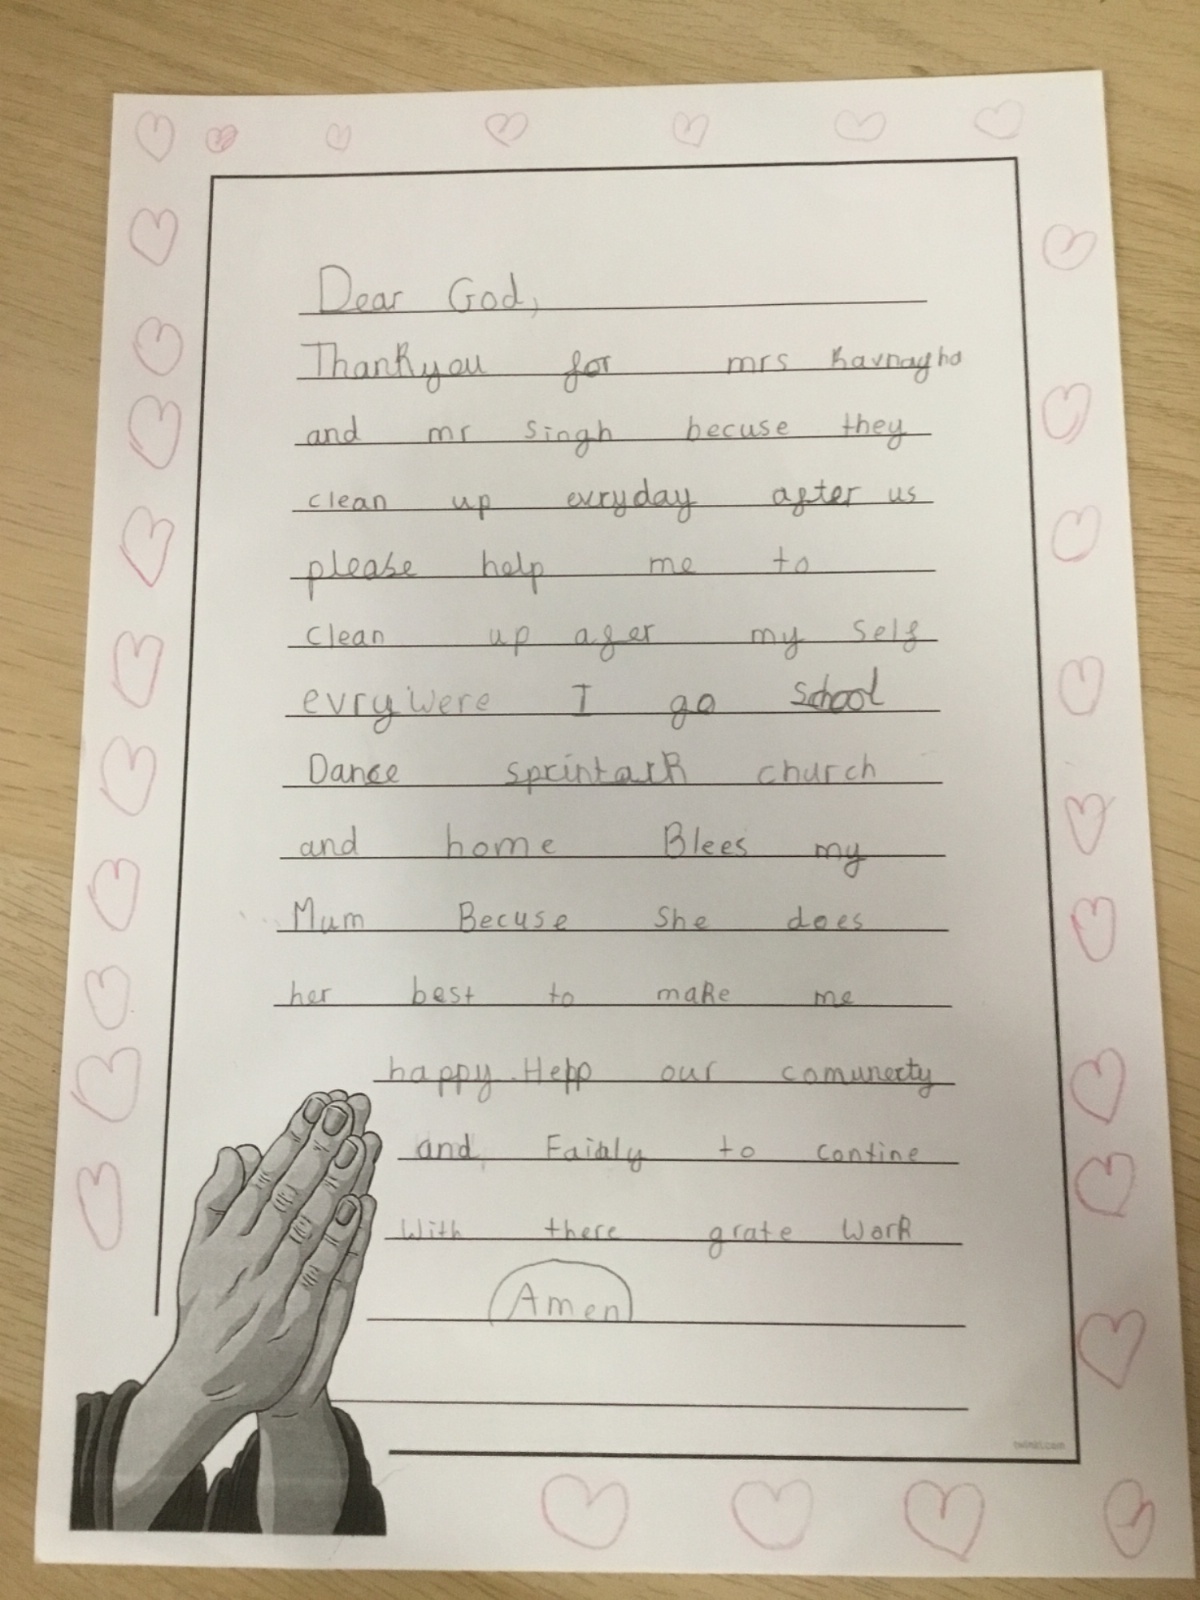 Dear God,
Thankyou for mrs Kavnagha
and mr Singh becuse they
clean up evryday after us
please help me to
clean up after my self
evrywere I go School
Dance sprintark church
and home Blees my
Mum Becuse She does
her best to make me
happy. Help our comunecty
and Faimly to contine
With there grate Work
Amen
twinkl.com